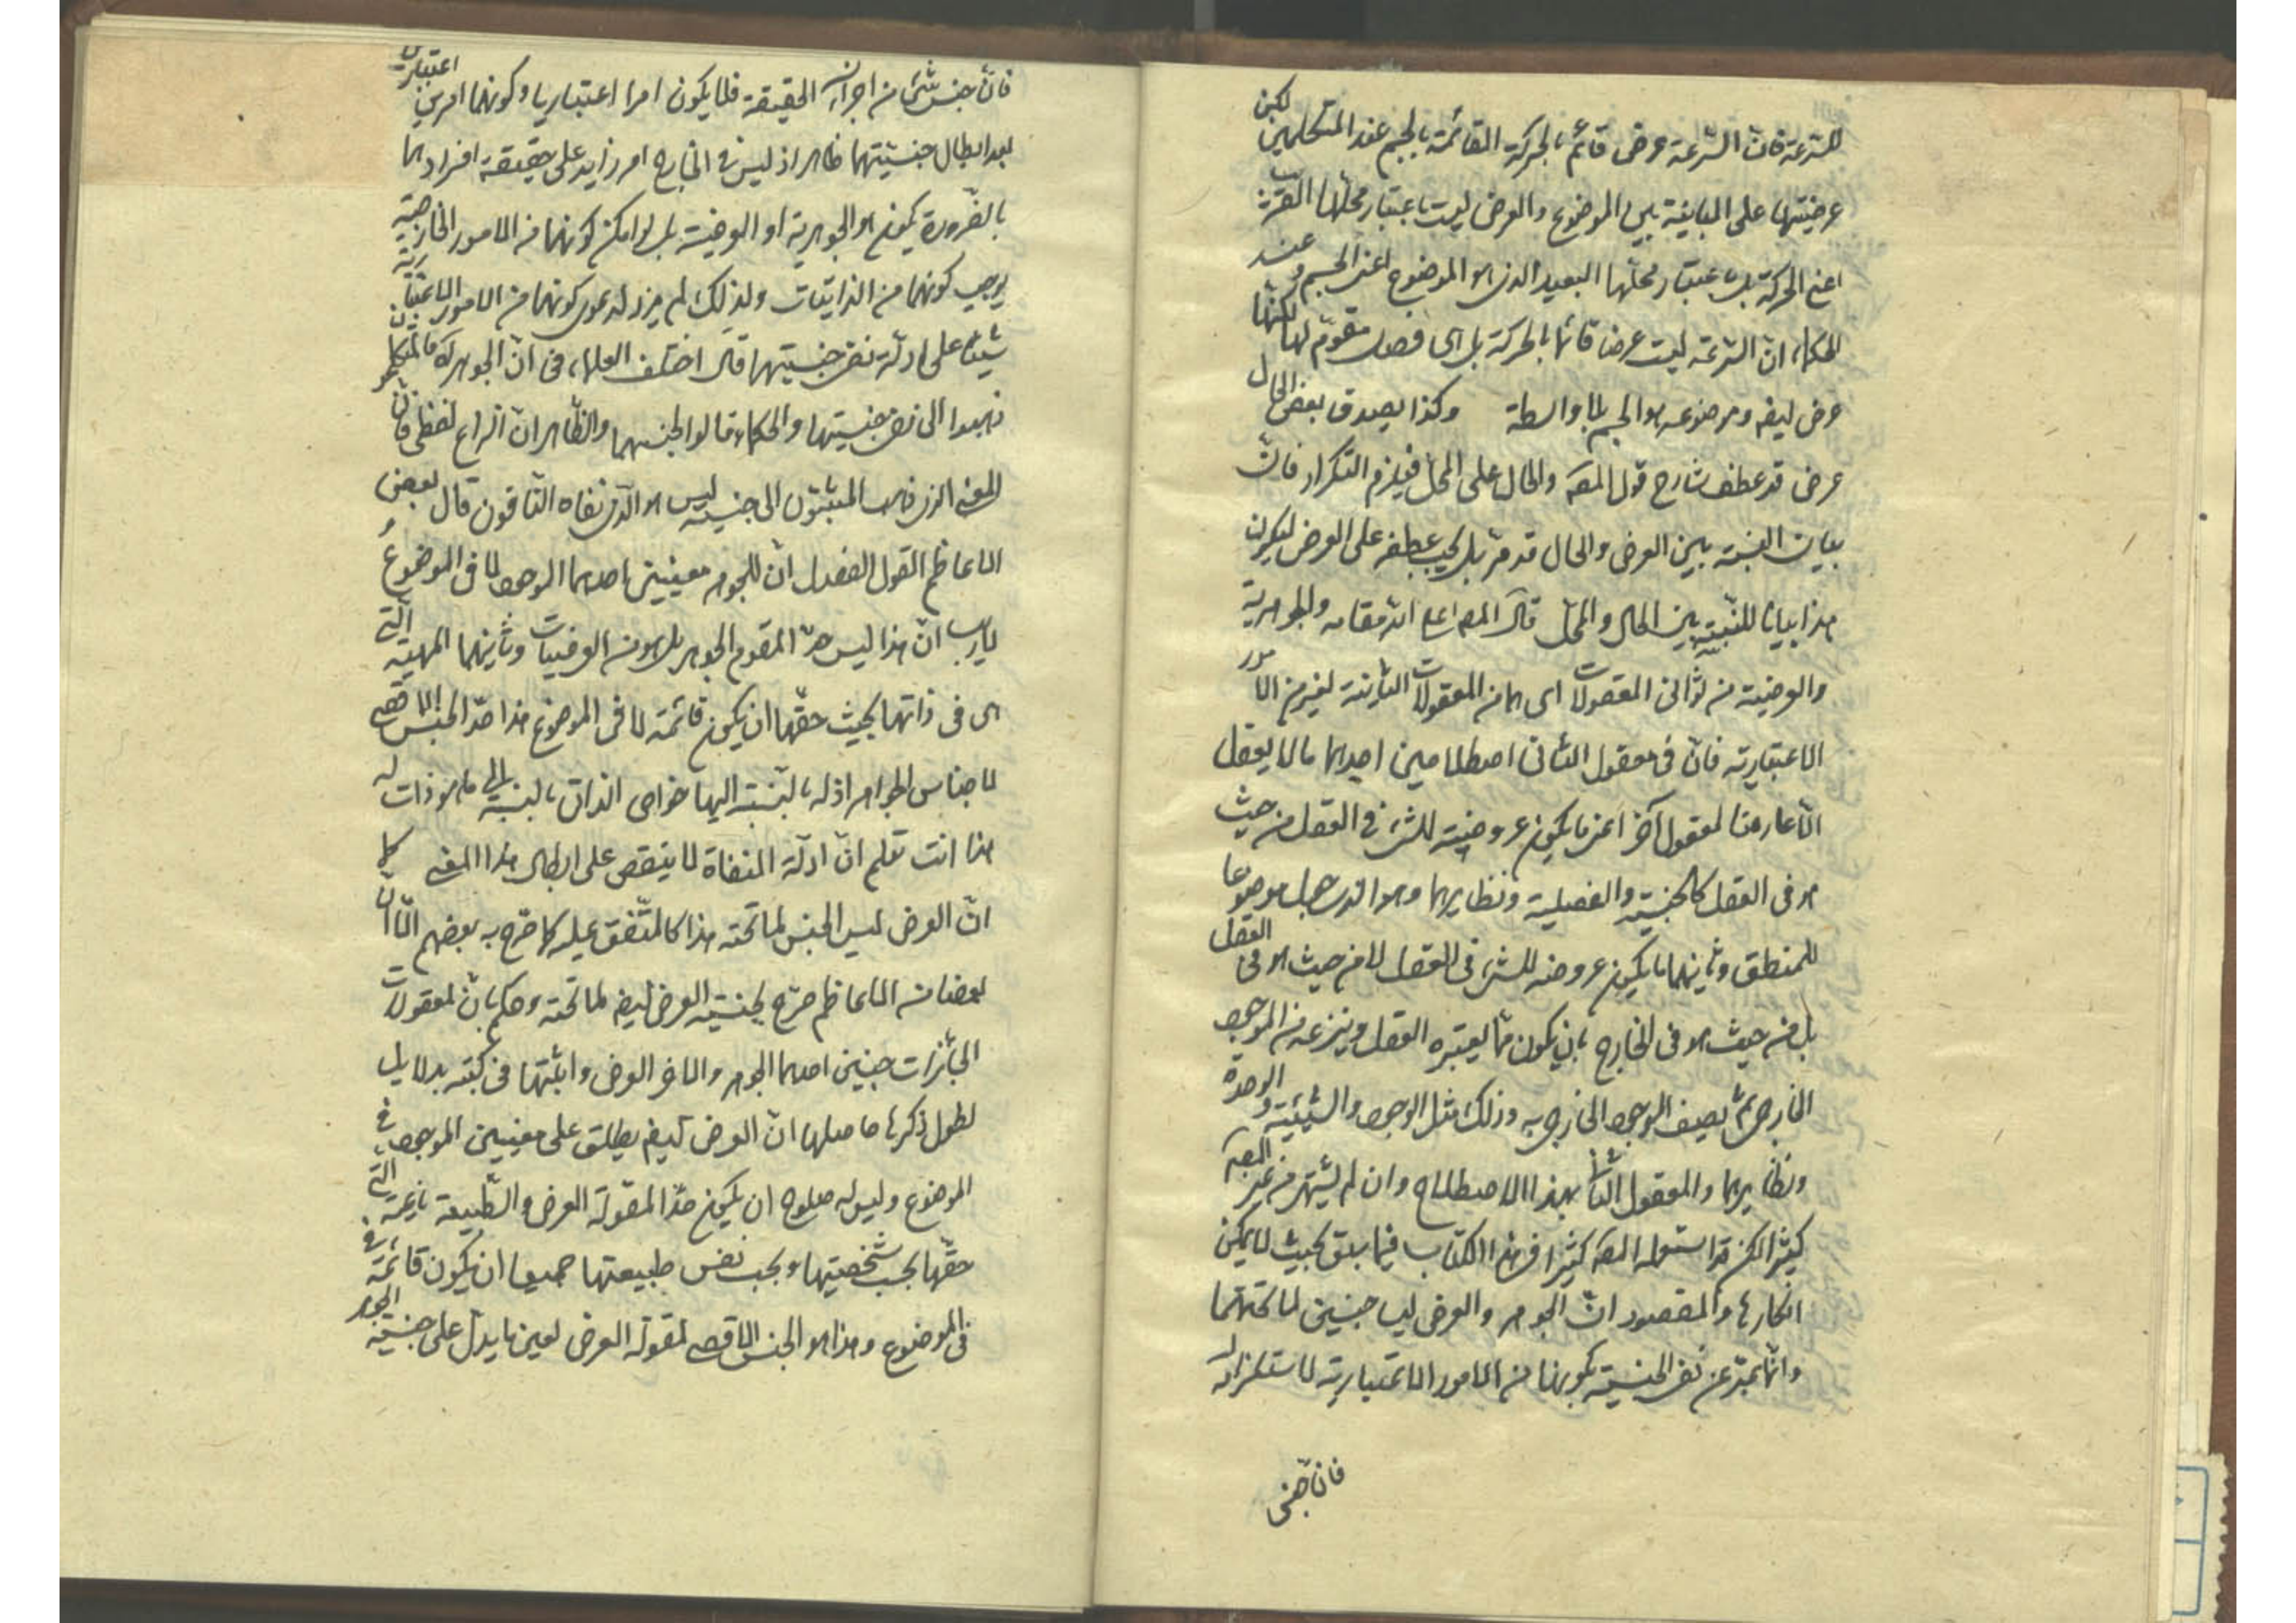 للسرعة فان السرعة عرض قائم بالحركة القائمة بالجسم عند المتكلمين لكن
عرضيتها على المباينة بين الموضوع والعرض ليست باعتبار محلها القريب
اعنى الحركة بل باعتبار محلها البعيد الذى هو الموضوع اعنى الجسم وعند
الحكماء ان السرعة ليست عرضا قائما بالحركة بل هى فصل مقوم لها لكنها
عرض ايضه وموضوعه هو الجسم بلا واسطة وكذا يصدق بعض الحال
عرض قد عطف شارح قول المصه والحال على المحل فيلزم التكرار فان
بيان النسبة بين العرض والحال قد مر بل يجب عطفه على العرض ليكون
هذا بيانا للنسبة بين الحال والمحل قال المصه اعلى الله مقامه والجوهرية
والعرضية من ثوانى المعقولات اى هما من المعقولات الثانية ليفهم من الامور
الاعتبارية فان فى معقول الثانى اصطلاحين احدهما ما لا يعقل
الا عارضا لمعقول آخر اعنى ما يكون عروضه للشىء فى العقل من حيث
هو فى العقل كالجنسية والفصلية ونظايرهما وهو الذى جعل موضوعا
للمنطق وثانيهما ما يكون عروضه للشىء فى العقل لا من حيث هو فى العقل
بل من حيث هو فى الخارج بان يكون مما يعتبره العقل وينزعه من الموجود
الخارجى ثم يصف الموجود الخارجى به وذلك مثل الوجود والشيئية والوحدة
ونظايرهما والمعقول الثانى بهذا الاصطلاح وان لم يشتهر من غير المصه
كثيرا لكن قد استعمله المصه كثيرا فى هذا الكتاب فيما سبق بحيث لا يمكن
انكارها والمقصود ان الجوهر والعرض ليسا جنسين لما تحتهما
وانما عبر عن نفى الجنسية بكونها من الامور الاعتبارية لاستلزامه
فان جنس
فان جنس شىء من اجزائه الحقيقة فلا يكون امرا اعتباريا وكونهما امرين اعتباريين
بعد ابطال جنسيتهما ظاهر اذ ليس فى الخارج امر زايد على حقيقة افرادهما
بالضرورة يكون هو الجوهرية او العرضية بل لو امكن كونهما من الامور الخارجية
يوجب كونهما من الذاتيات ولذلك لم يزد لدعوى كونهما من الامور الاعتبارية
شيئا على ادلة نفى جنسيتهما قال اختلف العلماء فى ان الجوهر فالمتكلمون
ذهبوا الى نفى جنسيتها والحكماء قالوا لجنسهما والظاهر ان النزاع لفظى فان
المعنى الذى ذهب المثبتون الى جنسيته ليس هو الذى نفاه النافون قال بعض
الاعاظم القول الفصل ان للجوهر معنيين احدهما الموجود لا فى الموضوع
لا ريب ان هذا ليس حد المقوم الجوهر بل هو من العرضيات وثانيهما المهية التى
هى فى ذاتها بحيث حقها ان يكون قائمة لا فى الموضوع هذا حد الجنس الاقصى
لاجناس الجواهر اذ له بالنسبة اليها خواص الذاتى بالنسبة الى ما هو ذات له
هذا انت تعلم ان ادلة المنفاة لا ينقض على ابطال هذا المعنى كما
ان العرض ليس الجنس لما تحته هذا كالمتفق عليه كما صرح به بعضهم الا ان
بعضا من الاعاظم صرح بجنسية العرض ايضه لما تحته وحكم بان لمعقولات
الجائزات جنسين احدهما الجوهر والآخر العرض واثبتها فى كتبه بدلايل
لطول ذكرها حاصلها ان العرض ايضه يطلق على معنيين الموجود فى
الموضوع وليس له صلوح ان يكون حدا لمقولة العرض والطبيعة ناعتية التى
حقها بحسب شخصيتها وبحسب نفس طبيعتها جميعا ان يكون قائمة فى
فى الموضوع وهذا هو الجنس الاقصى لمقولة العرض لعين ما يدل على جنسية الجوهر